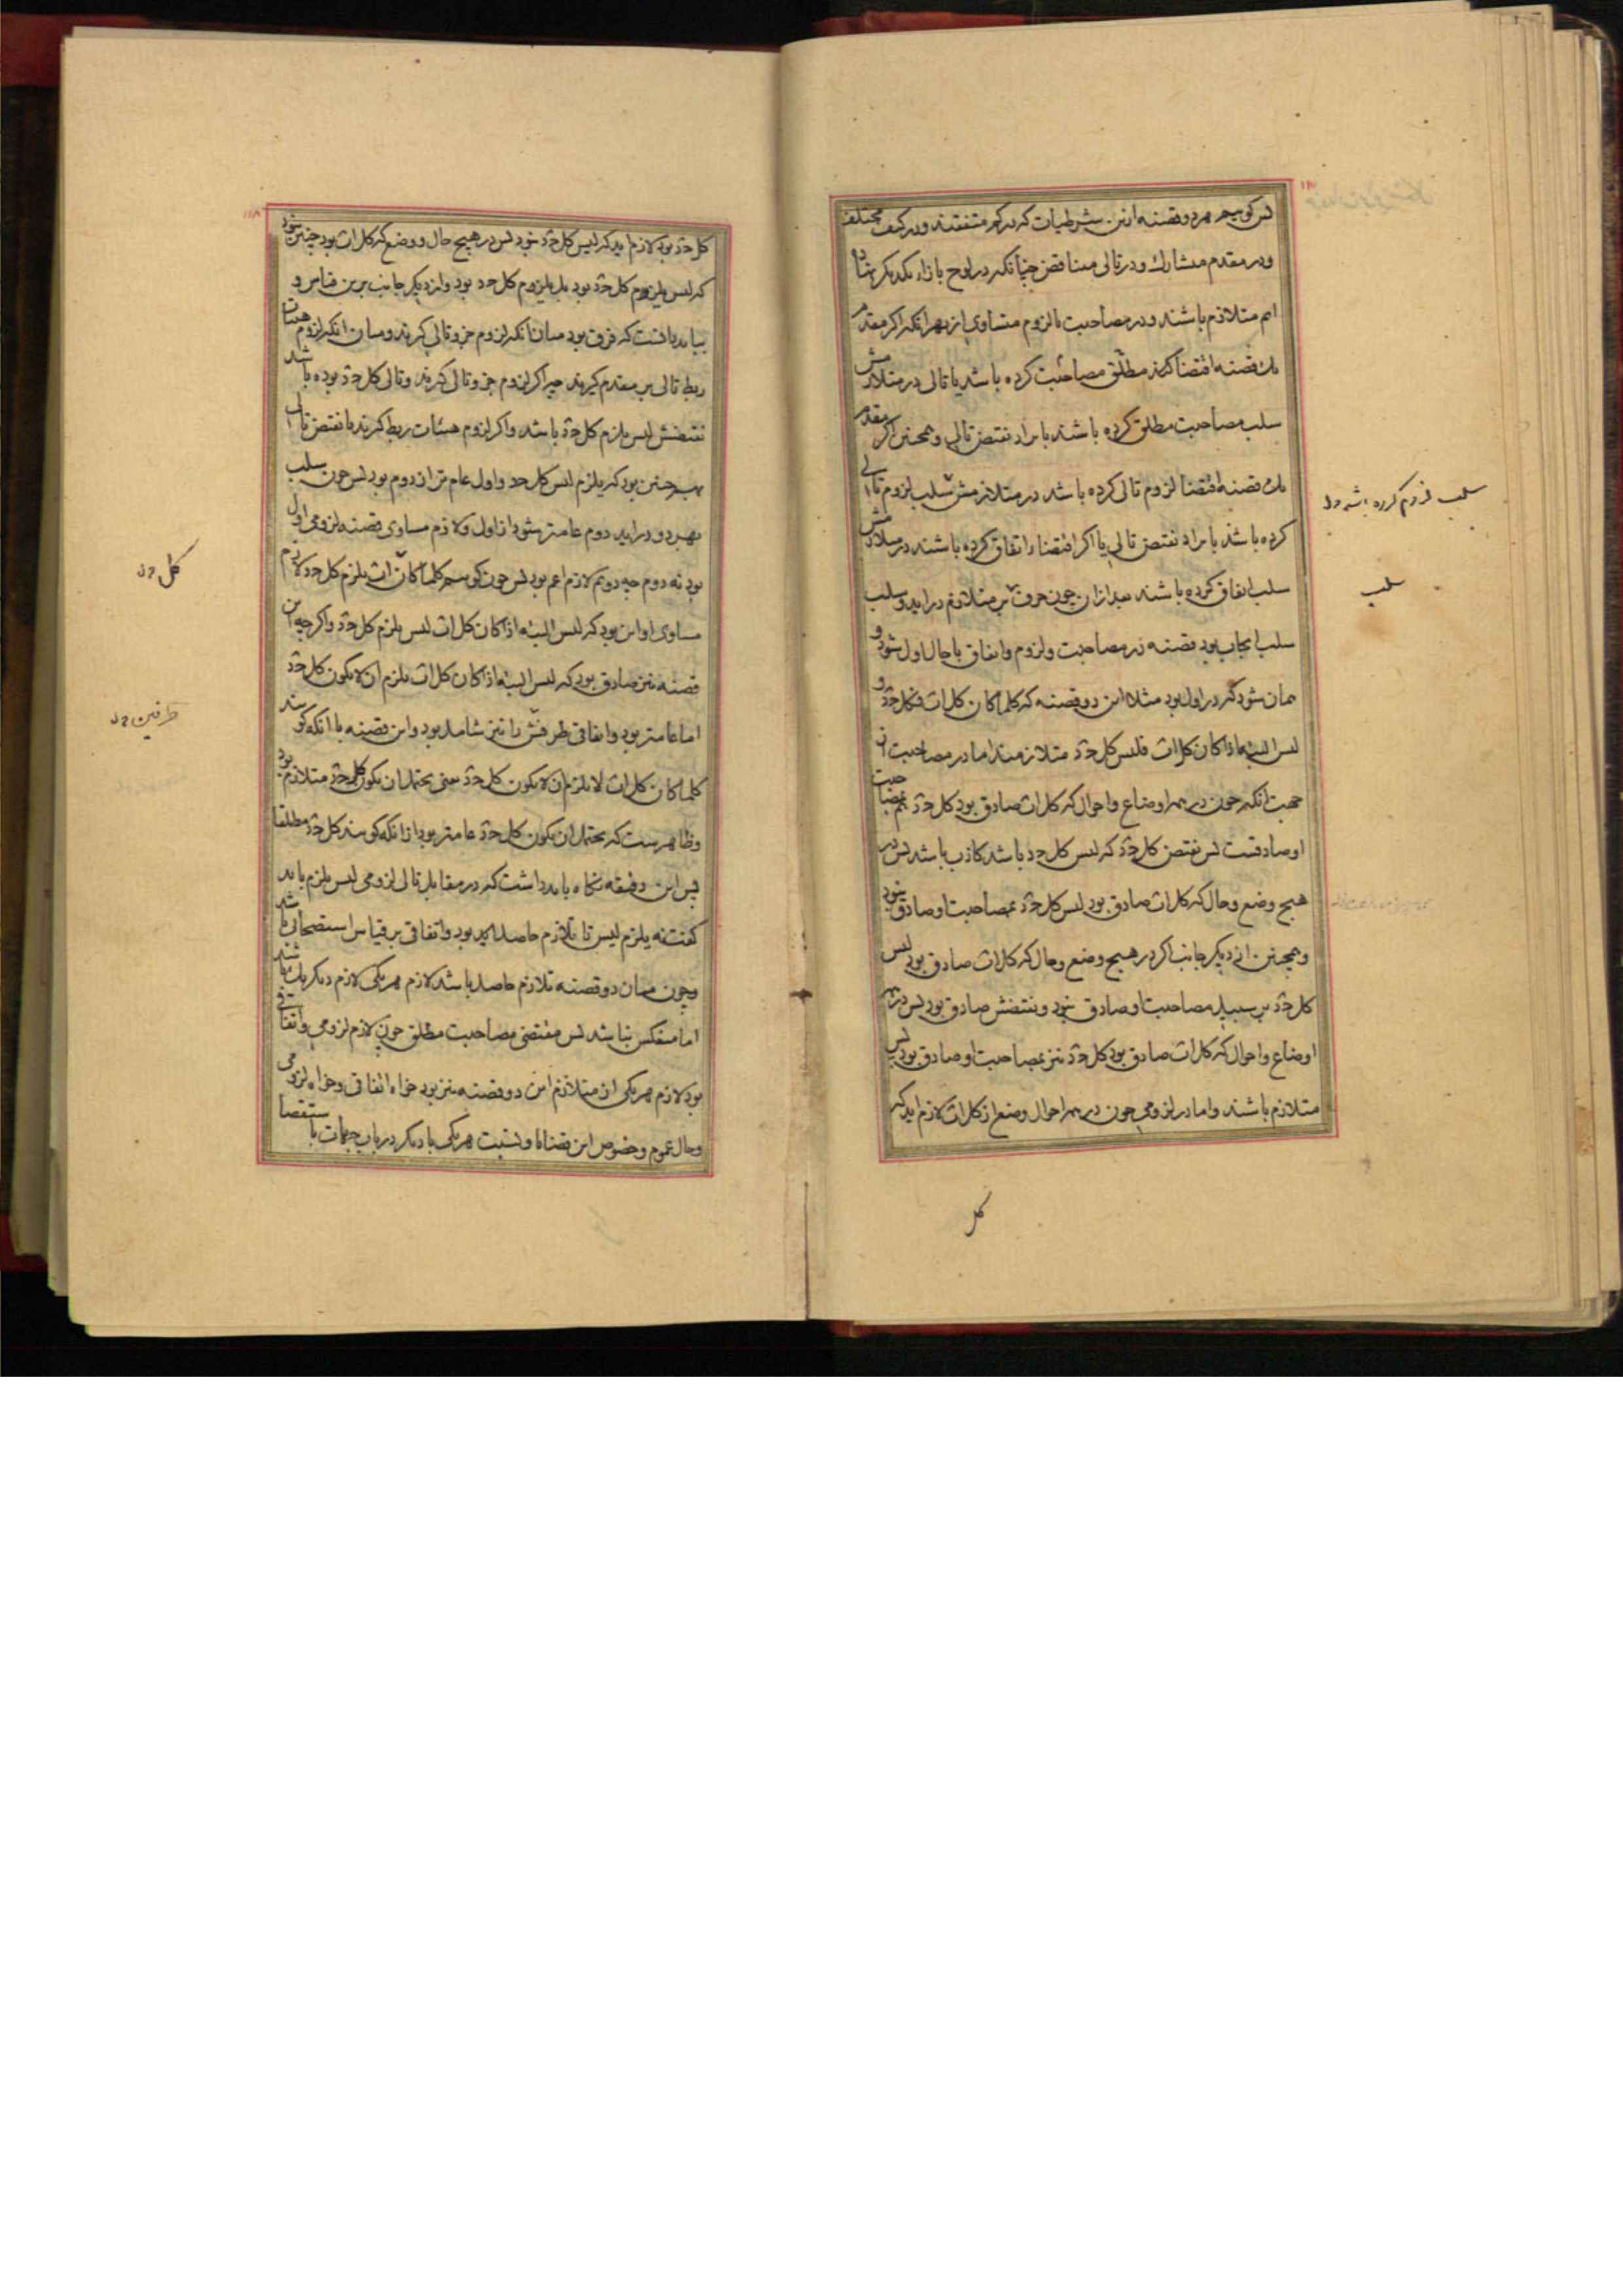 پس کوییم هر دو قضیه ازین شرطیات که در کم متفقند و در کیف مختلف
و در مقدم مشارک و در تالی مناقض چنانکه در لوح بازاء یکدیکر نهاده
ایم متلازم باشند و در مصاحبت یا لزوم متساوی از بهر انکه اکر مقدم
یک قضیه اقتضا کند مطلق مصاحبت کرده باشد با تالی در متلازمش
سلب مصاحبت مطلق کرده باشند با مراد نقیض تالی و همچنین اکر مقدم
یک قضیه اقتضا لزوم تالی کرده باشد در متلازمش سلب لزوم تالی
کرده باشد با مراد نقیض تالی یا اکر اقتضا را اتفاق کرده باشند در متلازمش
سلب اتفاق کرده باشند بعد ازان چون حرف بر متلازم دراید و سلب
سلب ایجاب بود قضیه در مصاحبت و لزوم و اتفاق با حال اول شود و
همان شود که در اول بود مثلا این دو قضیه که کلما کان کل اب فکل جد و
لیس البته اذا کان کل اب فلیس کل جد متلازمند اما در مصاحبت از
جهت انکه چون در همه اوضاع و احوال که کل اب صادق بود کل جد بمصاحبت
او صادقست پس نقیض کل جد که لیس کل جد باشد کاذب باشد پس در
هیچ وضع و حال که کل اب صادق بود لیس کل جد بمصاحبت او صادق نبود
و همچنین از دیکر جانب اکر در هیچ وضع و حال که کل اب صادق بود لیس
کل جد بر سبیل مصاحبت او صادق نبود و نقیضش صادق بود پس در همه
اوضاع و احوال که کل اب صادق بود کل جد نیز بمصاحبت او صادق بود پس
متلازم باشند و اما در لزومی چون در همه احوال و وضع از کل اب لازم اید که
کل
سلب لزوم کرده باشد
سلب
۱۱۸
کل جد بود لازم اید که لیس کل جد نبود پس در هیچ حال و وضع که کل اب بود چنین نبود
که لیس یلزم کل جد بود بل یلزم کل جد بود و از دیکر جانب برین قیاس و
بباید دانست که فرق بود میان انکه لزوم جزو تالی کیرند و میان انکه لزوم هیات
ربط تالی بر مقدم کیرند چه اکر لزوم جزو تالی کیرند و تالی کل جد بوده باشد
نقیضش لیس یلزم کل جد باشد و اکر لزوم هیئات ربط کیرند با نقیض تالی
بهم چنین بود که یلزم لیس کل جد و اول عام تر از دوم بود پس چون سلب
بهر دو دراید دوم عامتر شود از اول و لازم مساوی قضیه لزومی اول
بود نه دوم چه دوم لازم اعم بود پس چون کوییم کلما کان اب یلزم کل جد لازم
مساوی او این بود که لیس البته اذا کان کل اب لیس یلزم کل جد و اکر چه این
قضیه نیز صادق بود که لیس البته اذا کان کل اب یلزم ان لا یکون کل جد
اما عامتر بود و اتفاقی طرفش را نیز شامل بود و این قضیه با انکه کویند
کلما کان کل اب لا یلزم ان لا یکون کل جد یعنی یحتمل ان یکون کل جد متلازم بود
و ظاهرست که یحتمل ان یکون کل جد عامتر بود از انکه کویند کل جد مطلقا
پس این دقیقه نکاه باید داشت که در مقابل تالی لزومی لیس یلزم باید
کفت نه یلزم لیس تا تلازم حاصل اید و اتفاقی بر قیاس استصحابی باشد
و چون میان دو قضیه تلازم حاصل باشد لازم هر یکی لازم دیکر یک باشد
اما منعکس نباشد پس مقتضی مصاحبت مطلق چون لازم لزومی و اتفاقی
بود لازم هر یکی از متلازم این دو قضیه نیز بود خواه اتفاقی و خواه لزومی
و حال عموم و خصوص این قضایا و نسبت هر یکی با دیکر در باب جهات باستقصا
کل
طرفین